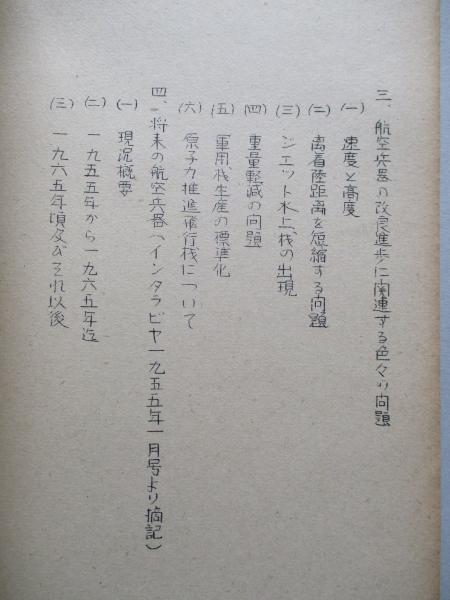 三、航空兵器の改良進歩に関連する色々の問題
(一) 速度と高度
(二) 離着陸距離を短縮する問題
(三) ジェット水上機の出現
(四) 重量軽減の問題
(五) 軍用機生産の標準化
(六) 原子力推進飛行機について
四、将来の航空兵器(インタラビヤ一九五五年一月号より摘記)
(一) 現況概要
(二) 一九五五年から一九六五年迄
(三) 一九六五年頃及びそれ以後